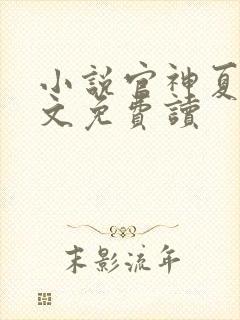 小説官神夏
文免費讀
末影流年